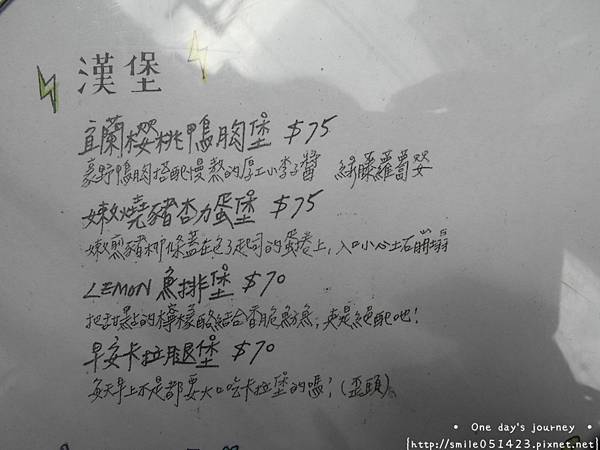 漢堡
宜蘭櫻桃鴨胸堡 $75
豪野鴨胸搭配慢熬的厚工小李子醬 綠藤蘿蔔嬰
嫩燒豬杏力蛋堡 $75
嫩煎豬柳條蓋在包了起司的蛋捲上，入口小心土石崩塌
LEMON 魚排堡 $70
把甜點的檸檬酪結合香脆魴魚，爽是絕配吔！
早安卡拉腿堡 $70
每天早上不是都要大口吃卡拉堡的嗎？(歪頭)
• One day's journey •
[http://smile051423.pixnet.net]